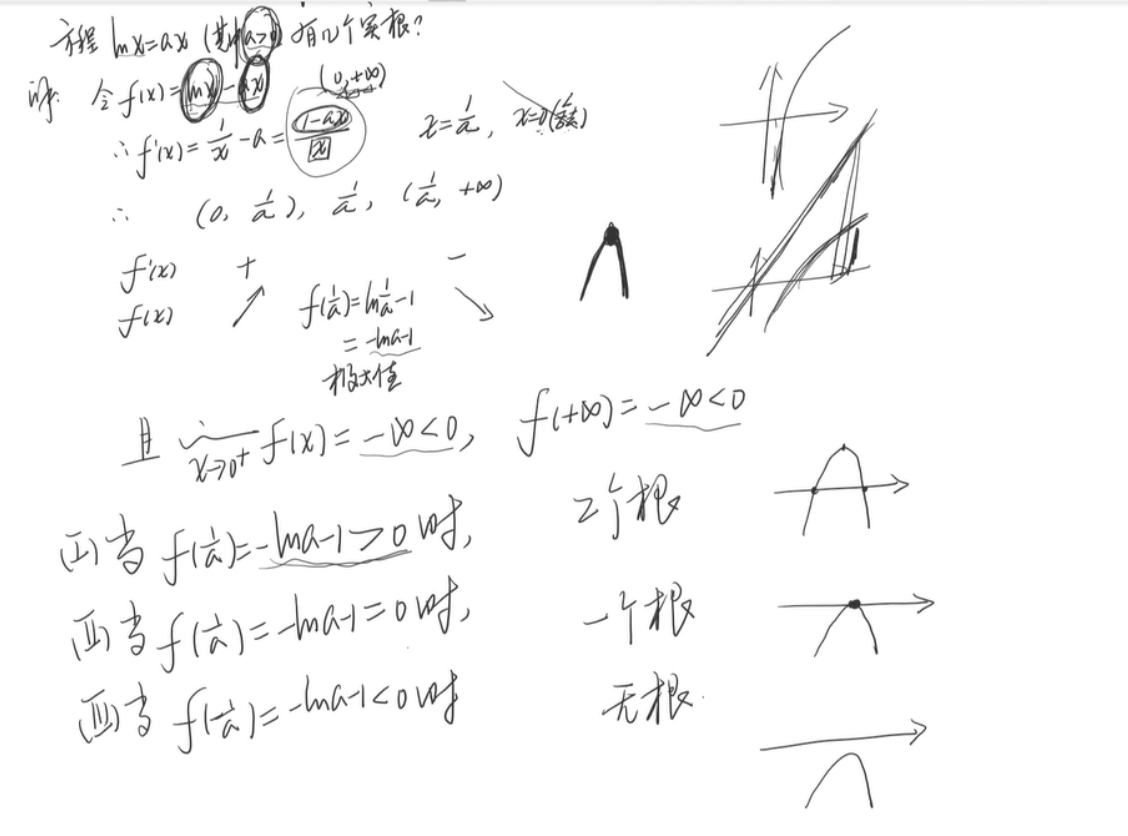 方程 lnx=ax (其中a>0) 有几个实根?
解: 令 f(x)=lnx-ax (0,+∞)
∴f'(x)=1/x-a=(1-ax)/x x=1/a, x=0(舍去)
∴ (0, 1/a), 1/a, (1/a, +∞)
f'(x) + -
f(x) ↗ f(1/a)=ln1/a-1 ↘
= -lna-1
极大值
且 lim x→0⁺ f(x)=-∞<0, f(+∞)=-∞<0
(I)当 f(1/a)=-lna-1>0时, 2个根
(II)当 f(1/a)=-lna-1=0时, 一个根
(III)当 f(1/a)=-lna-1<0时 无根.